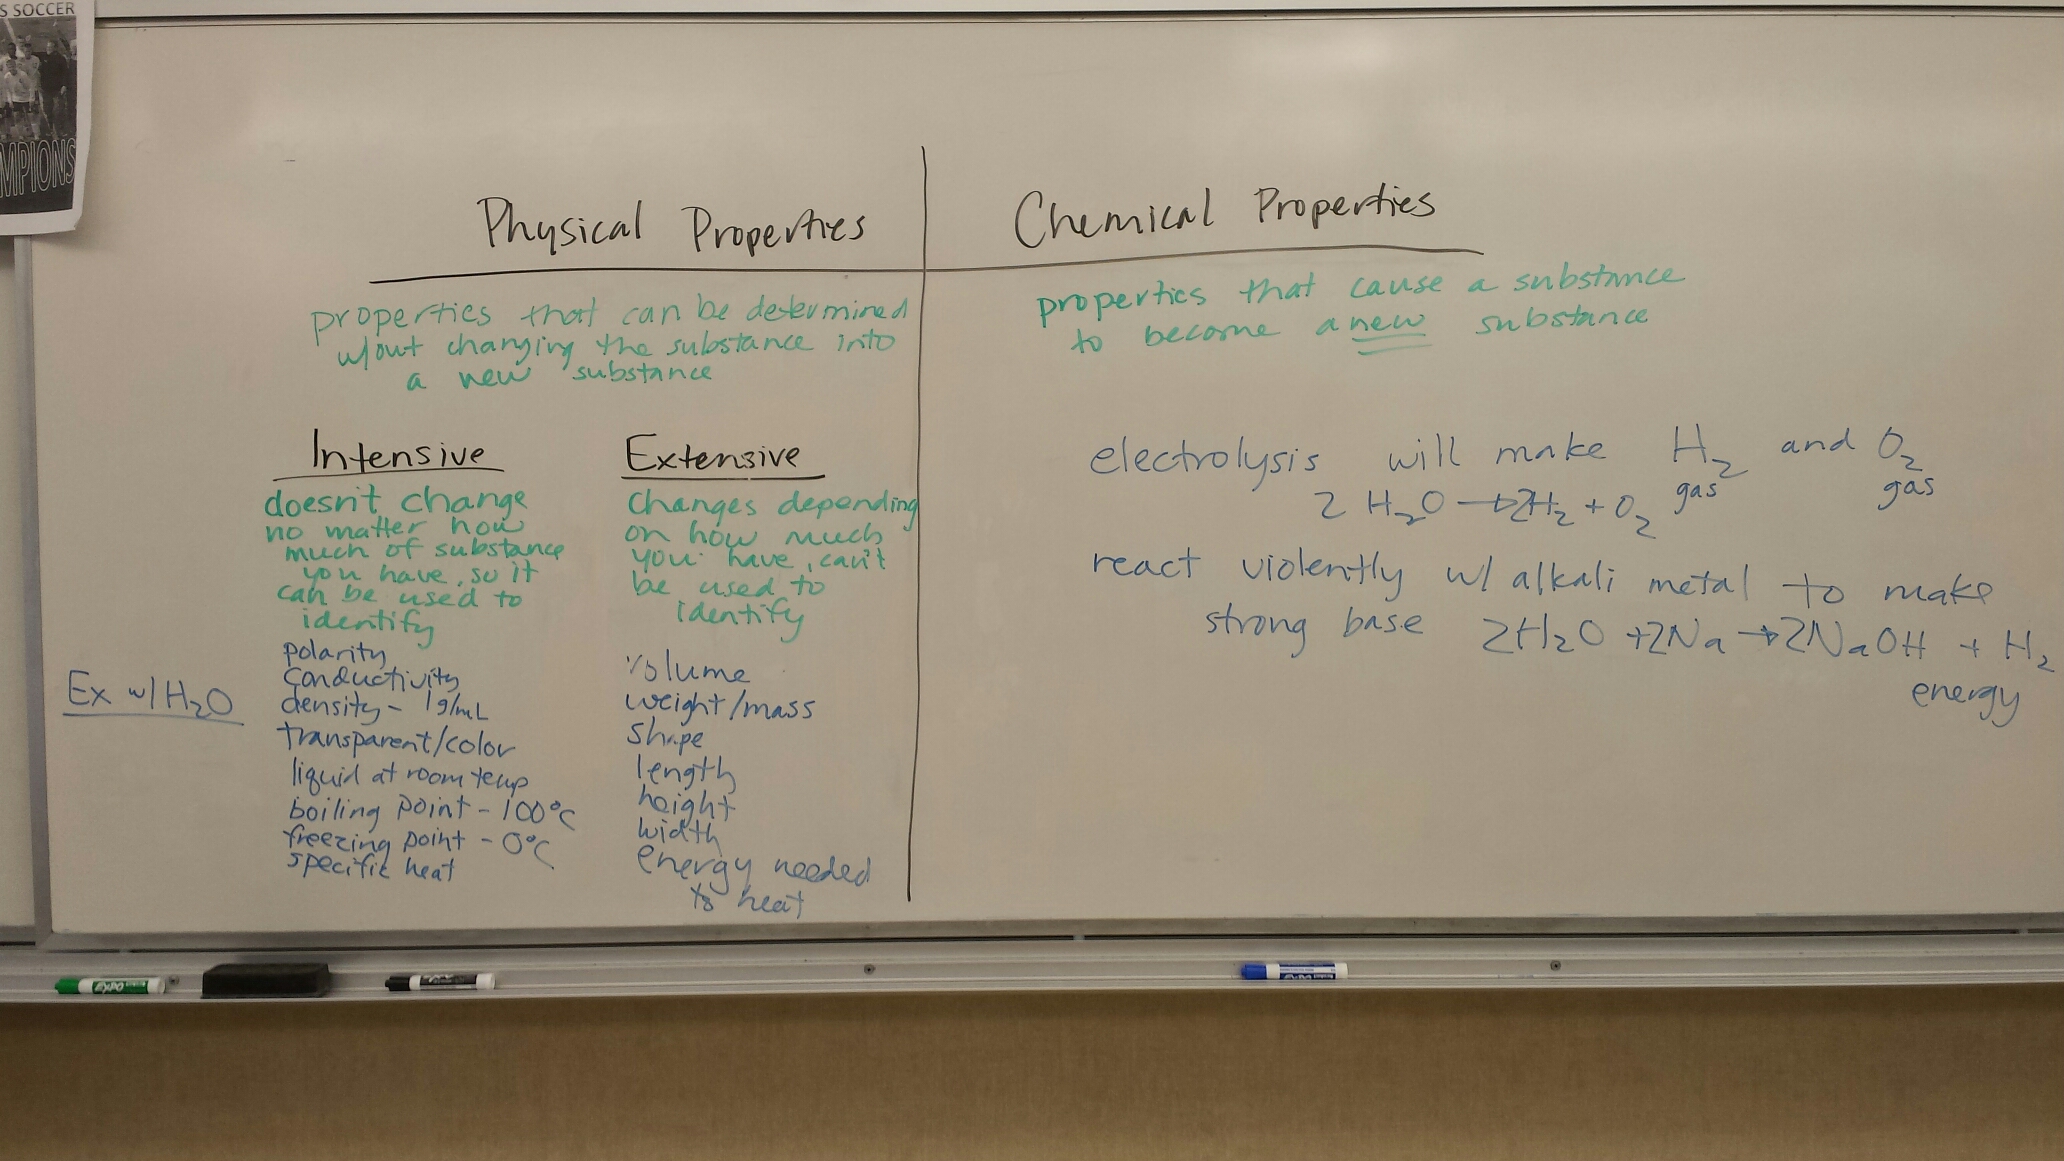 S SOCCER
MPIONS
Physical Properties
properties that can be determined
w/out changing the substance into
a new substance
Intensive
doesn't change
no matter how
much of substance
you have, so it
can be used to
identify
Ex w/ H₂O
polarity
conductivity
density - 1g/mL
transparent/color
liquid at room temp
boiling point - 100°C
freezing point - 0°C
specific heat
Extensive
changes depending
on how much
you have, can't
be used to
identify
volume
weight/mass
shape
length
height
width
energy needed
to heat
Chemical Properties
properties that cause a substance
to become a new substance
electrolysis will make H₂ and O₂
gas gas
2 H₂O → 2H₂ + O₂
react violently w/ alkali metal to make
strong base 2H₂O + 2Na → 2NaOH + H₂
energy
EXPO
EXPO